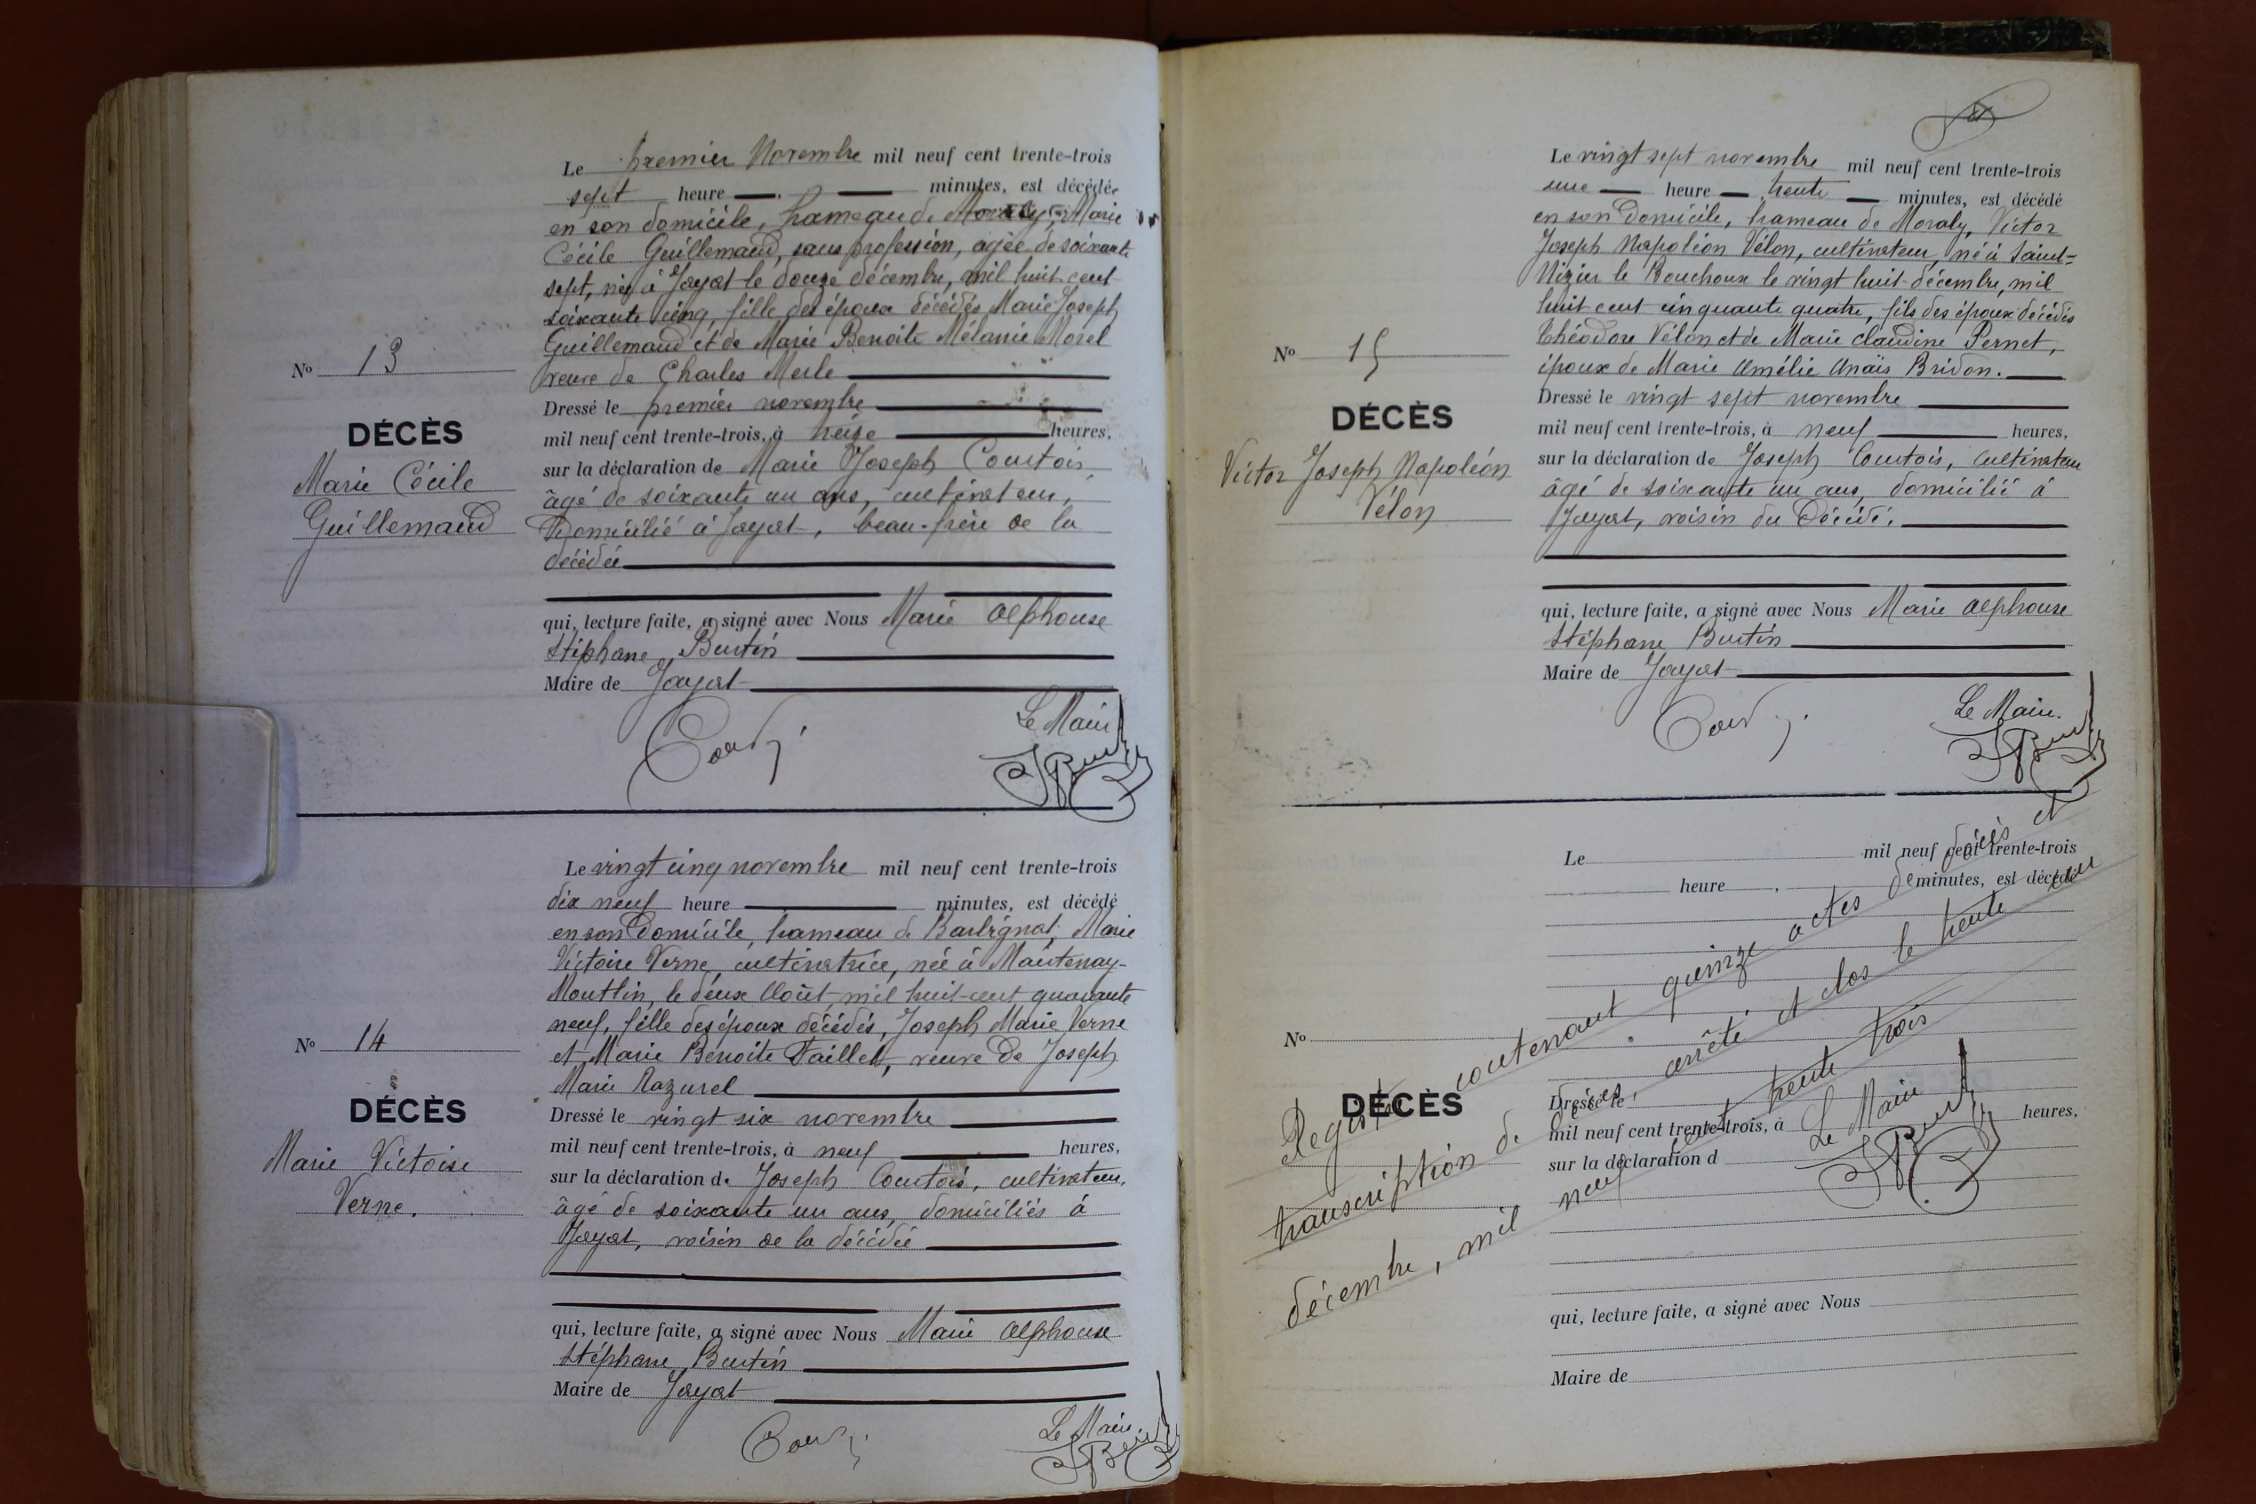 Le premier Novembre mil neuf cent trente-trois
sept heure minutes, est décédée
en son domicile, hameau de Moraly, Marie
Cécile Guillemaud, sans profession, agée de soixante
sept, née à Jayat le douze décembre, mil huit cent
soixante cinq, fille des époux décédés Marie Joseph
Guillemaud et de Marie Benoite Mélanie Morel
veuve de Charles Merle
Dressé le premier novembre
mil neuf cent trente-trois, à treize heures,
sur la déclaration de Marie Joseph Courtois
âgé de soixante un ans, cultivateur,
Domicilié à Jayat, beau-frère de la
décédée
qui, lecture faite, a signé avec Nous Marie Alphonse
Stéphane Burtin
Maire de Jayat
Le Maire
No 13
DÉCÈS
Marie Cécile
Guillemaud
Le vingt cinq novembre mil neuf cent trente-trois
dix neuf heure minutes, est décédé
en son Domicile, hameau de Marie
Victoire Verne, cultivatrice, née à Mantenay-
Montlin, le deux Août mil huit-cent quarante
neuf, fille des époux décédés, Joseph Marie Verne
et Marie Benoite veuve de Joseph
Marie Razurel
Dressé le vingt six novembre
mil neuf cent trente-trois, à neuf heures,
sur la déclaration de Joseph Courtois, cultivateur,
âgé de soixante un ans, domiciliés à
Jayat, voisin de la décédée
qui, lecture faite, a signé avec Nous Marie Alphonse
Stéphane Burtin
Maire de Jayat
Le Maire.
No 14
DÉCÈS
Marie Victoire
Verne.
Le vingt sept novembre mil neuf cent trente-trois
une heure trente minutes, est décédé
en son Domicile, hameau de Moraly, Victor
Joseph Napoléon Vélon, cultivateur, né à Saint-
Nizier le Bouchoux le vingt huit décembre, mil
huit cent cinquante quatre, fils des époux décédés
Théodore Vélon et de Marie Claudine Pernet,
époux de Marie Amélie Anaïs Bridon.
Dressé le vingt sept novembre
mil neuf cent trente-trois, à neuf heures,
sur la déclaration de Joseph Courtois, cultivateur
âgé de soixante un ans, domicilié à
Jayat, voisin du Décédé.
qui, lecture faite, a signé avec Nous Marie Alphonse
Stéphane Burtin
Maire de Jayat
Le Maire.
No 15
DÉCÈS
Victor Joseph Napoléon
Vélon
Le mil neuf cent trente-trois
heure minutes, est décédé
No
DÉCÈS
Dressé le
mil neuf cent trente-trois, à heures,
sur la déclaration d
qui, lecture faite, a signé avec Nous
Maire de
Registre contenant quinze actes de décès et
transcription de décès, arrêté et clos le trente un
décembre, mil neuf cent trente trois
Le Maire